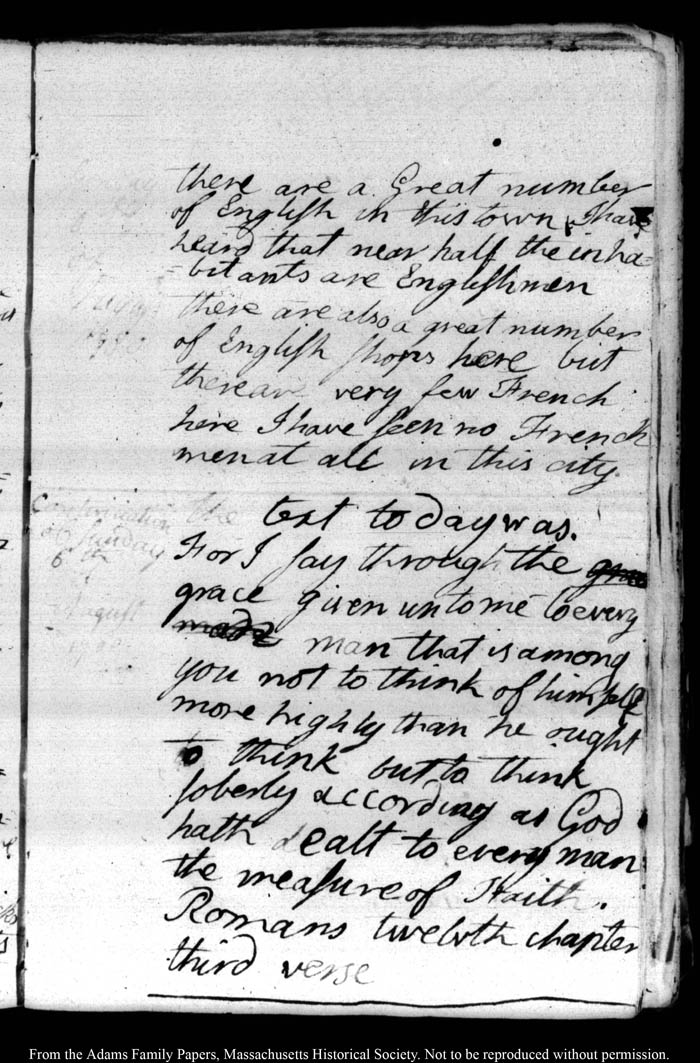 there are a Great number
of English in this town, I have
heard that near half the inha=
=bitants are Englishmen
there are also a great number
of English shops here but
there are very few French
here I have seen no French
men at all in this city.
Continuation
of Sunday
6th
August
The text to day was.
For I say through the
grace given unto me to every
man that is among
you not to think of himself
more highly than he ought
to think but to think
soberly according as God
hath dealt to every man
the measure of Faith.
Romans twelvth chapter
third verse
From the Adams Family Papers, Massachusetts Historical Society. Not to be reproduced without permission.